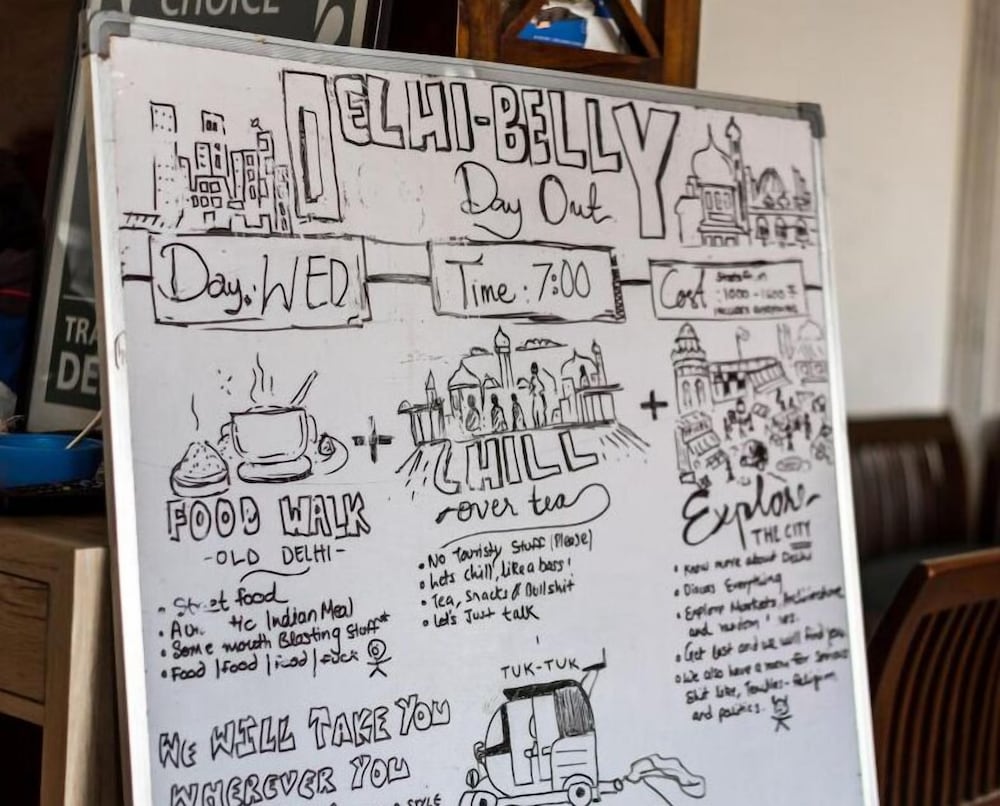 CHOICE
DELHI-BELLY
Day Out
Day: WED
Time: 7:00
Cost
1000-1600 ₹
TRA
DE
FOOD WALK
-OLD DELHI-
• Street food
Indian Meal
• Some mouth Blasting Stuff*
• Food | Food | Food | Fuck
CHILL
over tea
• No Touristy Stuff (Please)
• Lets chill, like a boss!
• Tea, Snacks & Bullshit
• Let's Just talk
Explore
THE CITY
• Know more about Delhi
• Discuss Everything
• Explore Markets,
and random
• Get lost and we will find you.
• We also have a menu for Serious
Shit like, Religion
and politics.
TUK-TUK
WE WILL TAKE YOU
WHEREVER YOU
STYLE